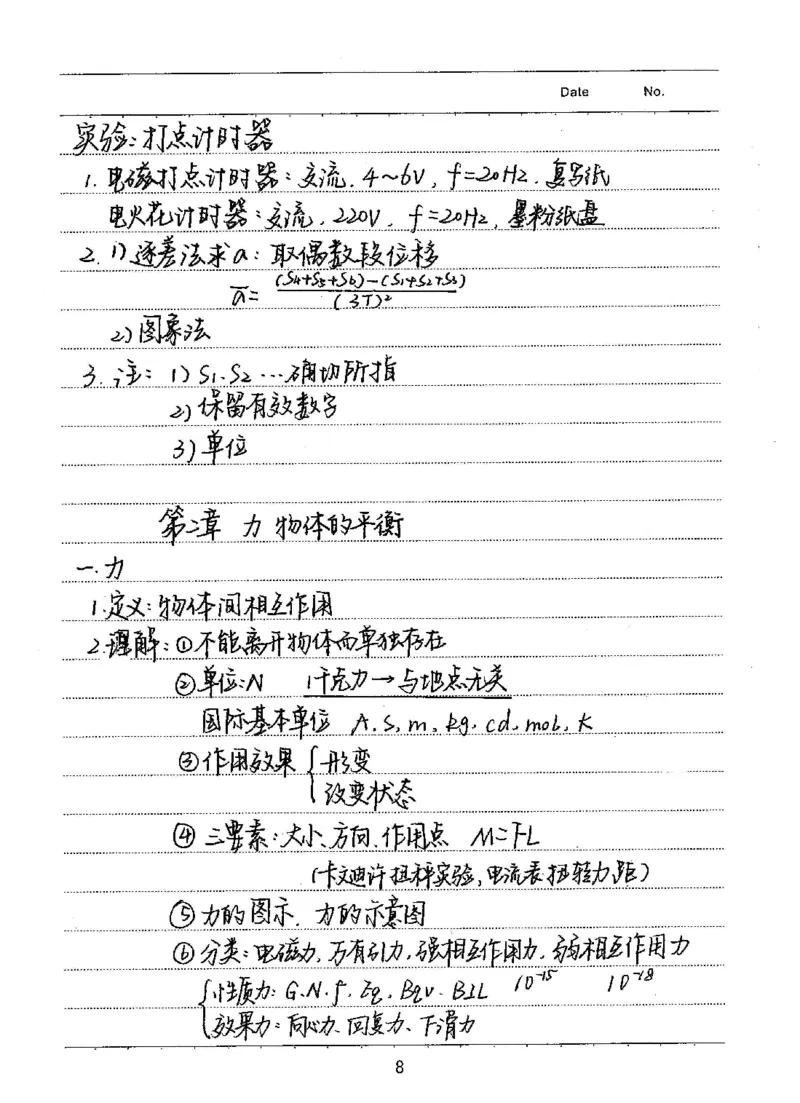 Date No.
实验:打点计时器
1. 电磁打点计时器:交流. 4~6V, f=20Hz. 复写纸
电火花计时器:交流. 220V, f=20Hz, 墨粉纸盘
2. 1)逐差法求a: 取偶数段位移
a̅ = (S4+S5+S6)-(S1+S2+S3) / (3T)²
2)图象法
3. 注: 1) S1. S2 …确切所指
2)保留有效数字
3)单位
第二章 力 物体的平衡
一.力
1.定义:物体间相互作用
2.理解:①不能离开物体而单独存在
②单位:N 1千克力→与地点无关
国际基本单位 A. S, m, kg. cd. mol, K
③作用效果 { 形变
改变状态
④三要素:大小、方向、作用点 M=FL
(卡文迪许扭秤实验,电流表扭转力距)
⑤力的图示. 力的示意图
⑥分类:电磁力,万有引力,强相互作用力,弱相互作用力
{ 性质力: G. N. f. Eq. Bqv. BIL 10⁻¹⁵ 10⁻¹⁸
效果力:向心力、回复力、下滑力
8